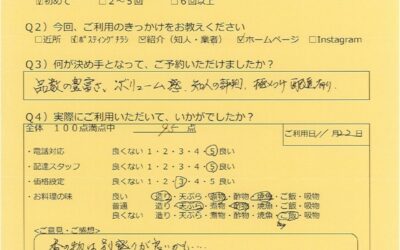 ☑初めて □2～5回 □6回以上
Q2）今回、ご利用のきっかけをお教えください
□近所 ☑ポスティングチラシ ☑紹介（知人・業者） ☑ホームページ □Instagram
Q3）何が決め手となって、ご予約いただけましたか？
品数の豊富さ、ボリューム感、知人の評判、極めつけ配達有り。
Q4）実際にご利用いただいて、いかがでしたか？
全体 100点満点中 95 点
ご利用日 11月22日
・電話対応 良くない 1・2・3・4・5 良い
・配達スタッフ 良くない 1・2・3・4・5 良い
・価格設定 良くない 1・2・3・4・5 良い
・お料理の味 良い 造り・天ぷら・煮物・酢物・焼魚・ご飯・吸物
普通 造り・天ぷら・煮物・酢物・焼魚・ご飯・吸物
良くない 造り・天ぷら・煮物・酢物・焼魚・ご飯・吸物
＜ご意見・ご感想＞
香の物は別盛りが良いかも…